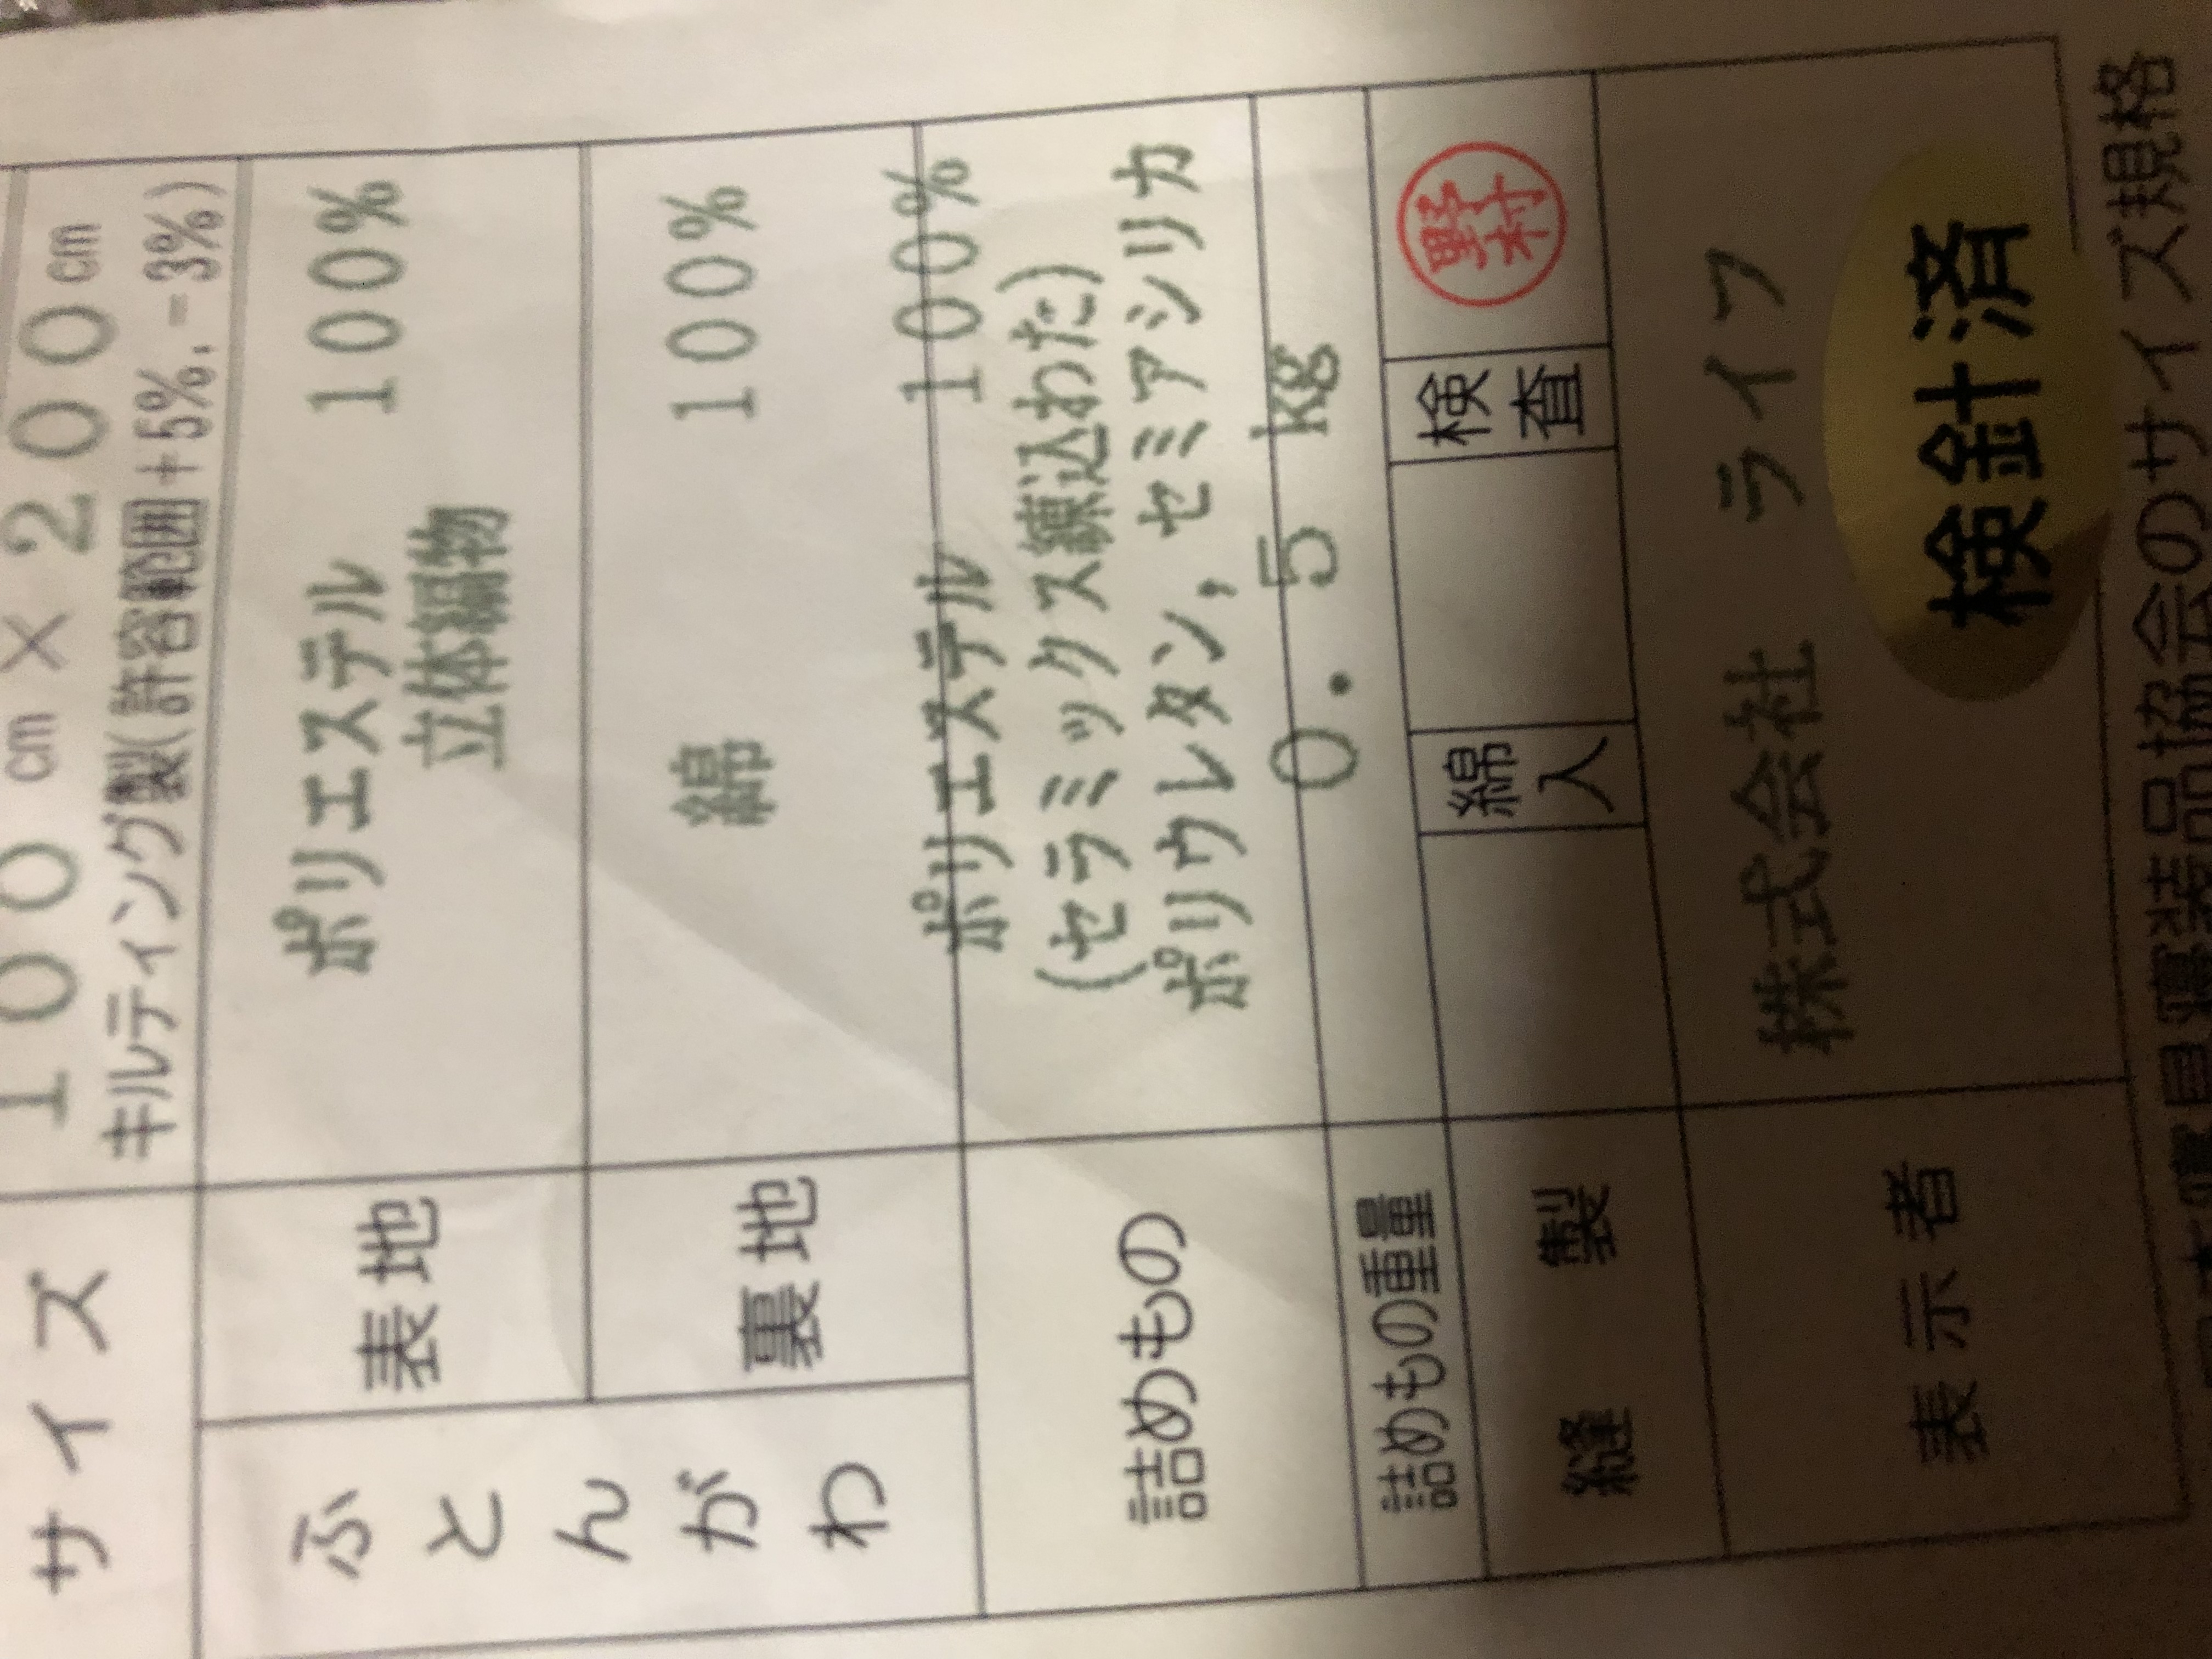 サイズ 100cm×200cm
キルティング製(許容範囲+5%,-3%)
ふとんがわ
表地 ポリエステル 100%
立体編物
裏地 綿 100%
詰めもの ポリエステル 100%
(セラミックス練込わた)
ポリウレタン,セミアシリカ
詰めものの重量 0.5 kg
縫製 綿入 検査 野村
表示者 株式会社 ライフ
検針済
寝装品協会のサイズ規格